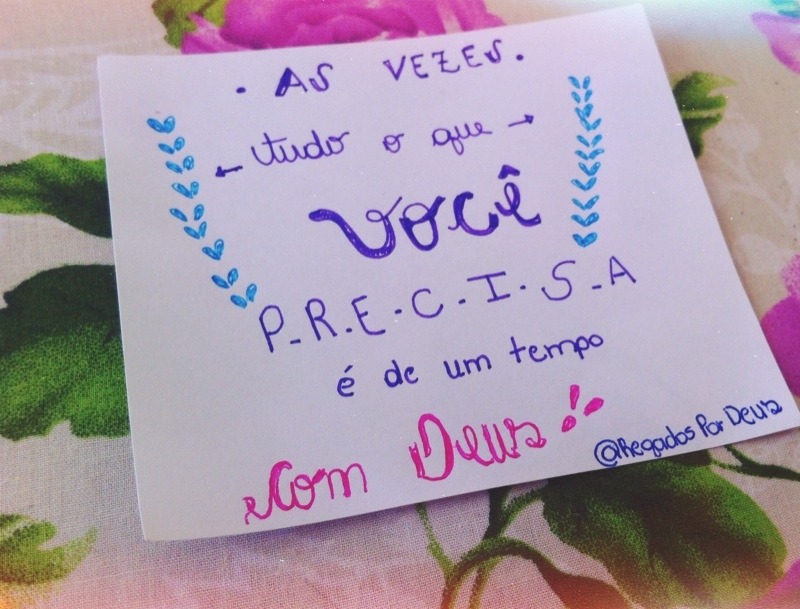 . AS VEZES.
← tudo o que →
você
P-R.E.C.I.S-A
é de um tempo
com Deus!!
@Regados Por Deus